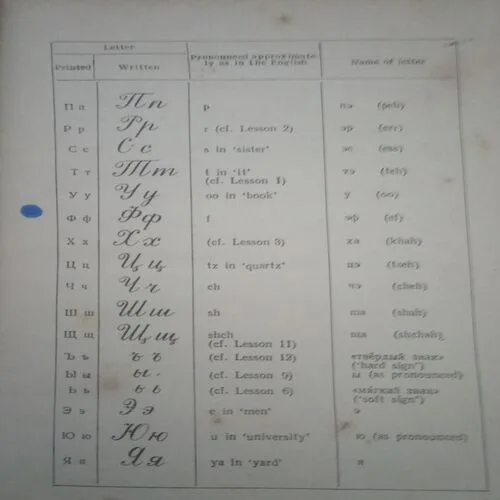 Letter
Pronounced approximate-
ly as in the English
Name of letter
Printed
Written
П п П п p пэ (peh)
Р р Р р r (cf. Lesson 2) эр (err)
С с С с s in ‘sister’ эс (ess)
Т т Т т t in ‘it’ тэ (teh)
(cf. Lesson 1)
У у У у oo in ‘book’ у (oo)
Ф ф Ф ф f эф (ef)
Х х Х х (cf. Lesson 3) ха (khah)
Ц ц Ц ц tz in ‘quartz’ цэ (tseh)
Ч ч Ч ч ch чэ (cheh)
Ш ш Ш ш sh ша (shah)
Щ щ Щ щ shch ща (shchah)
(cf. Lesson 11)
Ъ ъ ъ ъ (cf. Lesson 12) «твёрдый знак»
(‘hard sign’)
Ы ы ы - (cf. Lesson 9) ы (as pronounced)
Ь ь ь ь (cf. Lesson 6) «мягкий знак»
(‘soft sign’)
Э э Э э e in ‘men’ э
Ю ю Ю ю u in ‘university’ ю (as pronounced)
Я я Я я ya in ‘yard’ я